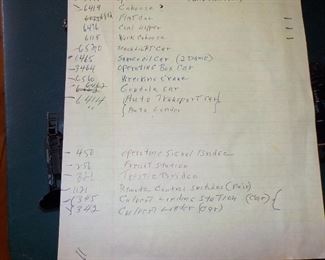 6419 Caboose
Flat Car
Coal Hopper
6119 Work Caboose
6520 Searchlight Car
6465 Sunoco Oil Car (2 Dome)
3464 Operating Box Car
6560 Wrecking Crane
6462 Gondola Car
6414 Auto Transport Car
" Auto Loader
450 Operating Signal Bridge
256 Freight Station
321 Trestle Bridge
1121 Remote Control Switches (Pair)
345 Culvert Unloading Station (Car)
342 Culvert Loader (Car)